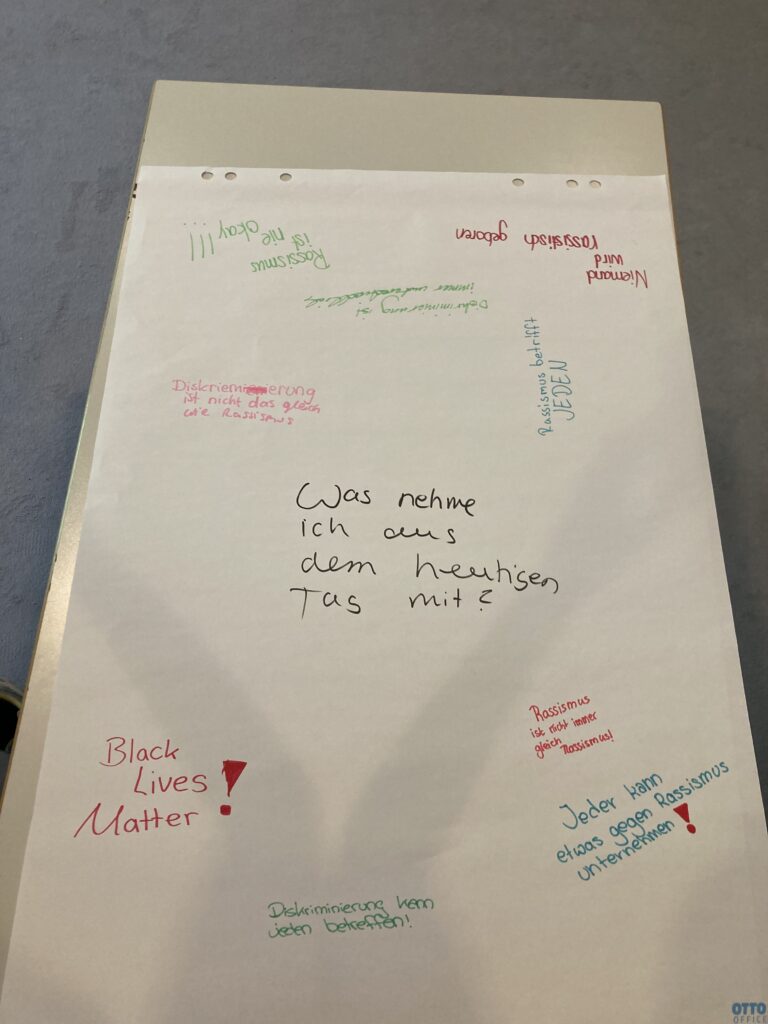 Rassismus
ist nie okay!!!
Niemand
wird
rassistisch geboren
Diskrimmierung ist
immer
Rassismus betrifft
JEDEN
Diskriemierung
ist nicht das gleich
wie Rassismus
Was nehme
ich aus
dem heutigen
Tag mit?
Rassismus
ist nicht immer
gleich Rassismus!
Black
Lives
Matter!
Jeder kann
etwas gegen Rassismus
unternehmen!
Diskriminierung kann
jeden betreffen!
OTTO
OFFICE